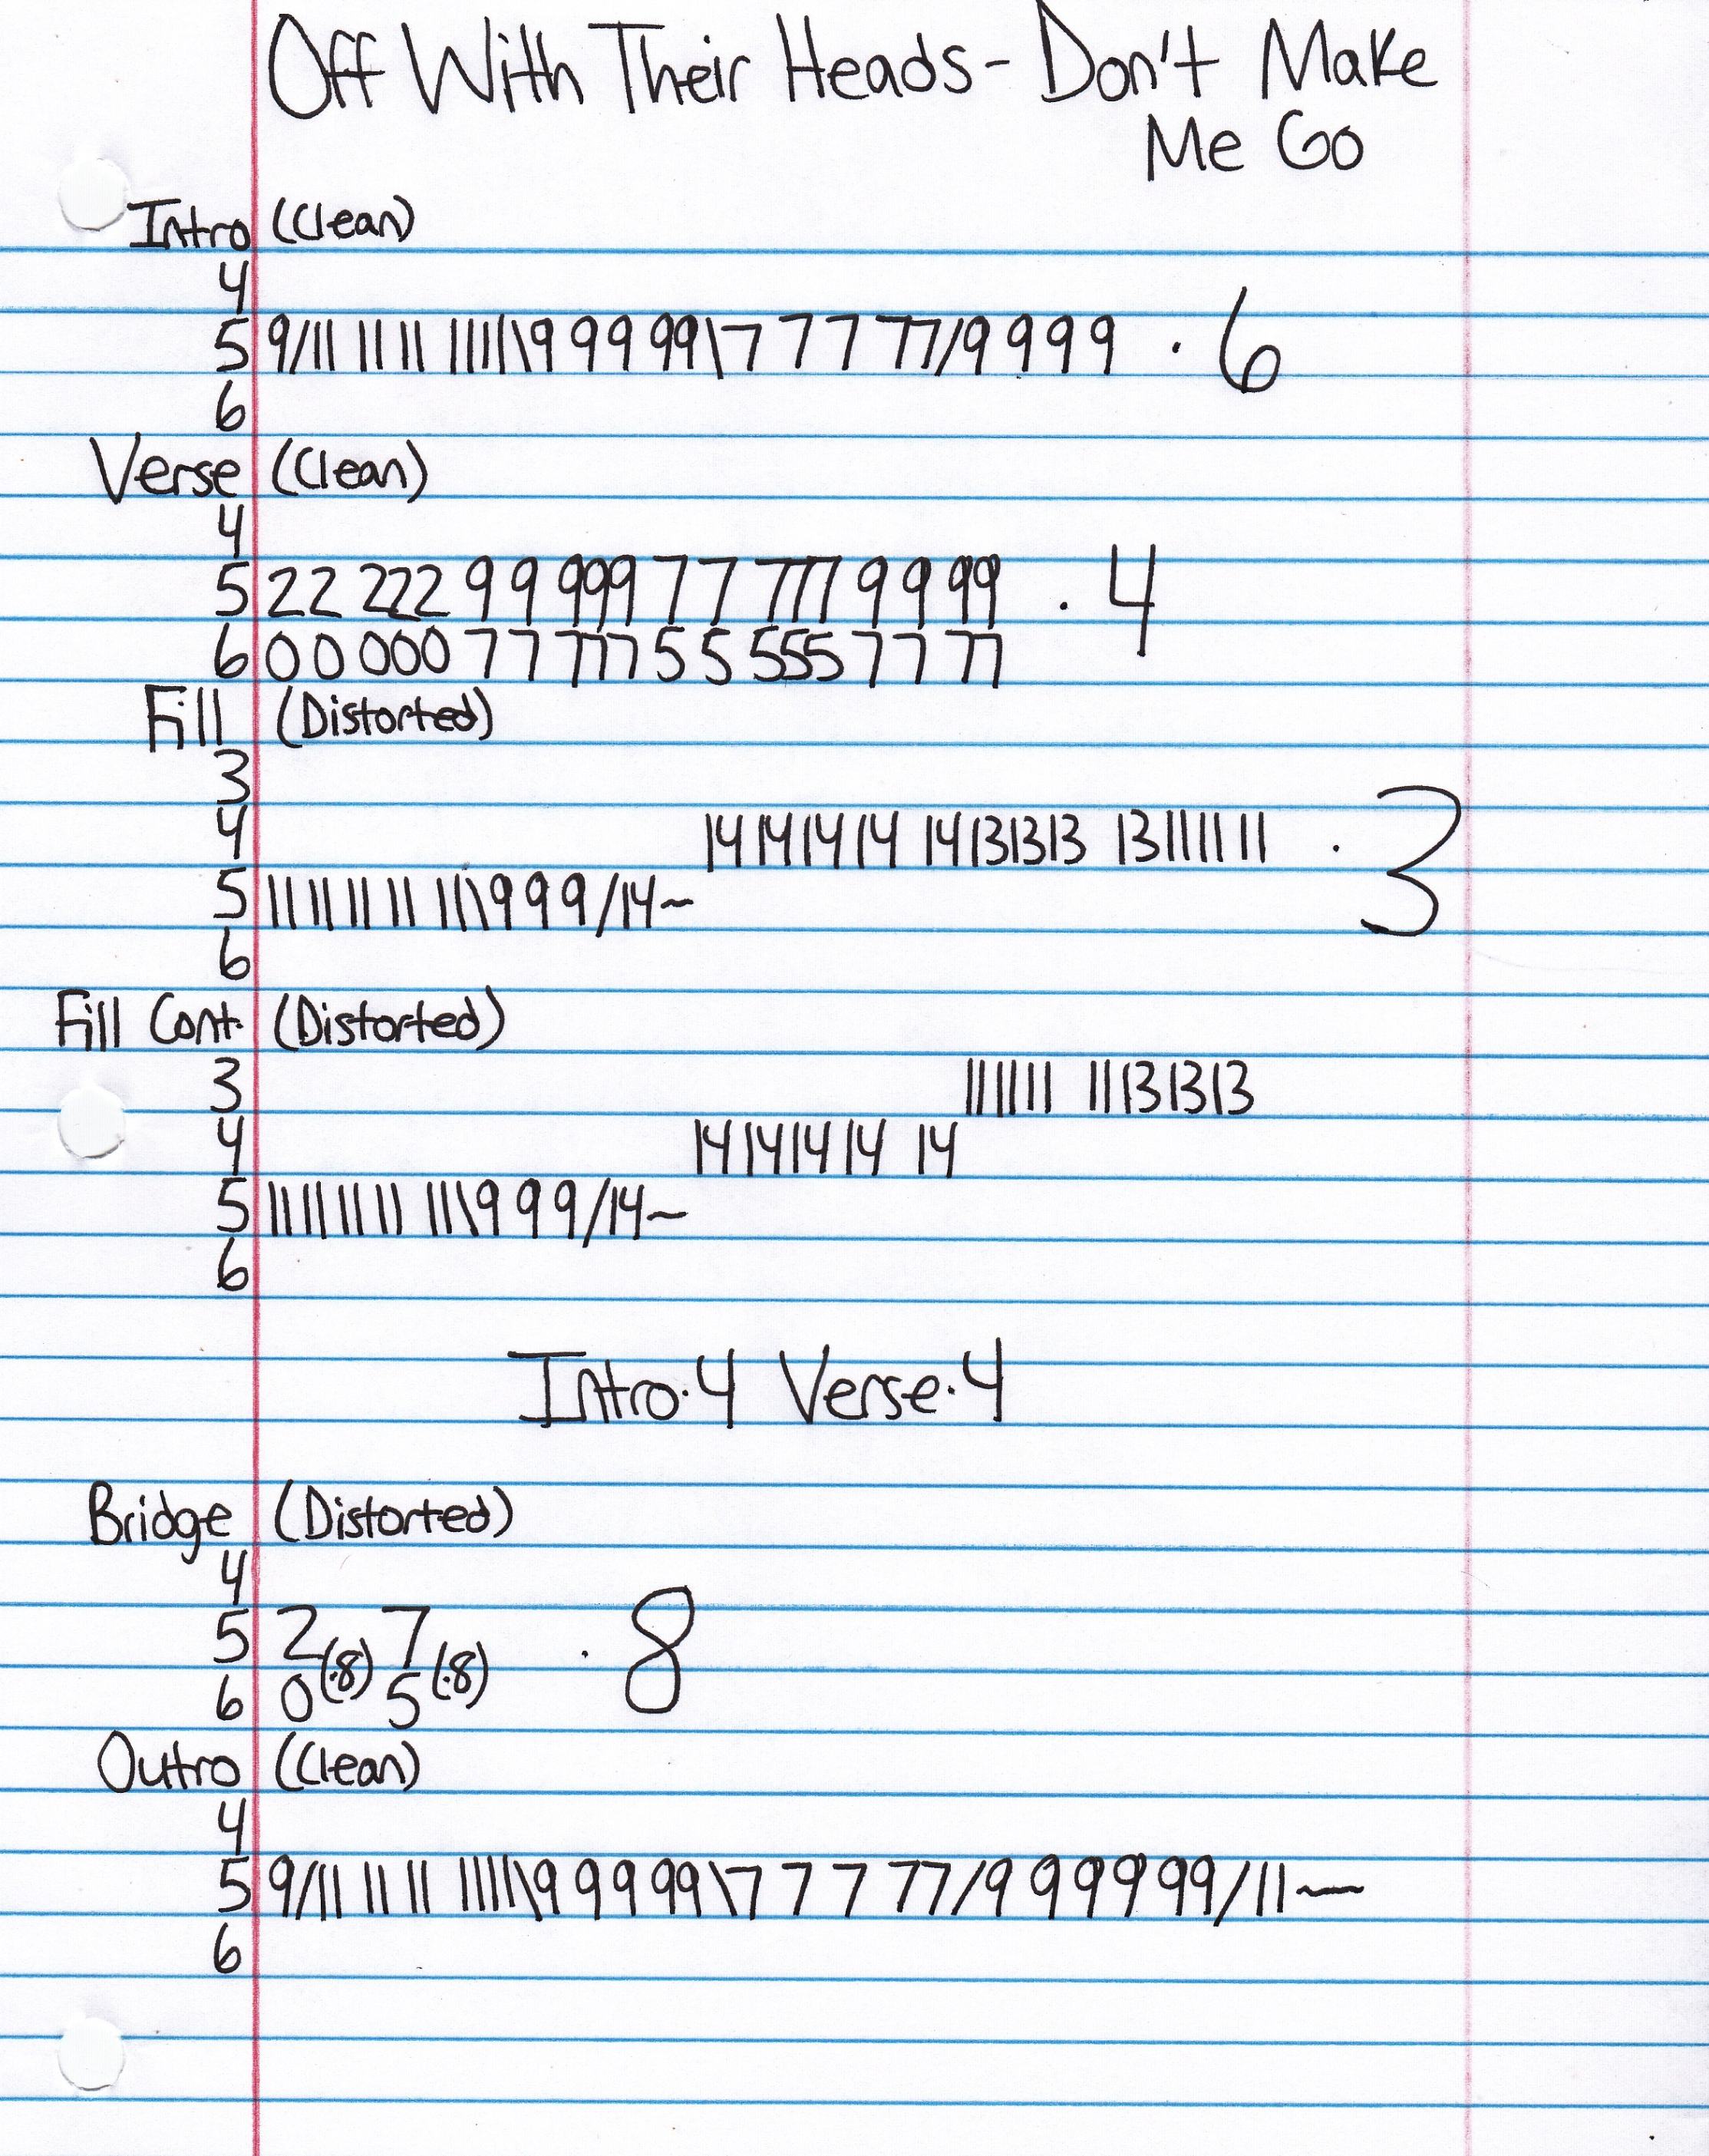 Off With Their Heads - Don't Make
Me Go
Intro (Clean)
4
5 9/11 11 11 11 11\9 9 9 9 9\7 7 7 7 7/9 9 9 9 · 6
6
Verse (Clean)
4
5 2 2 2 2 2 9 9 9 9 9 7 7 7 7 7 9 9 9 9 · 4
6 0 0 0 0 0 7 7 7 7 7 5 5 5 5 5 7 7 7 7
Fill (Distorted)
3
4 14 14 14 14 14 13 13 13 13 11 11 11 · 3
5 11 11 11 11 11\9 9 9/14~
6
Fill Cont. (Distorted)
3 11 11 11 11 13 13 13
4 14 14 14 14 14
5 11 11 11 11 11\9 9 9/14~
6
Intro·4 Verse·4
Bridge (Distorted)
4
5 2 (·8) 7 (·8) · 8
6 0 5
Outro (Clean)
4
5 9/11 11 11 11 11\9 9 9 9 9\7 7 7 7 7/9 9 9 9 9 9/11~
6